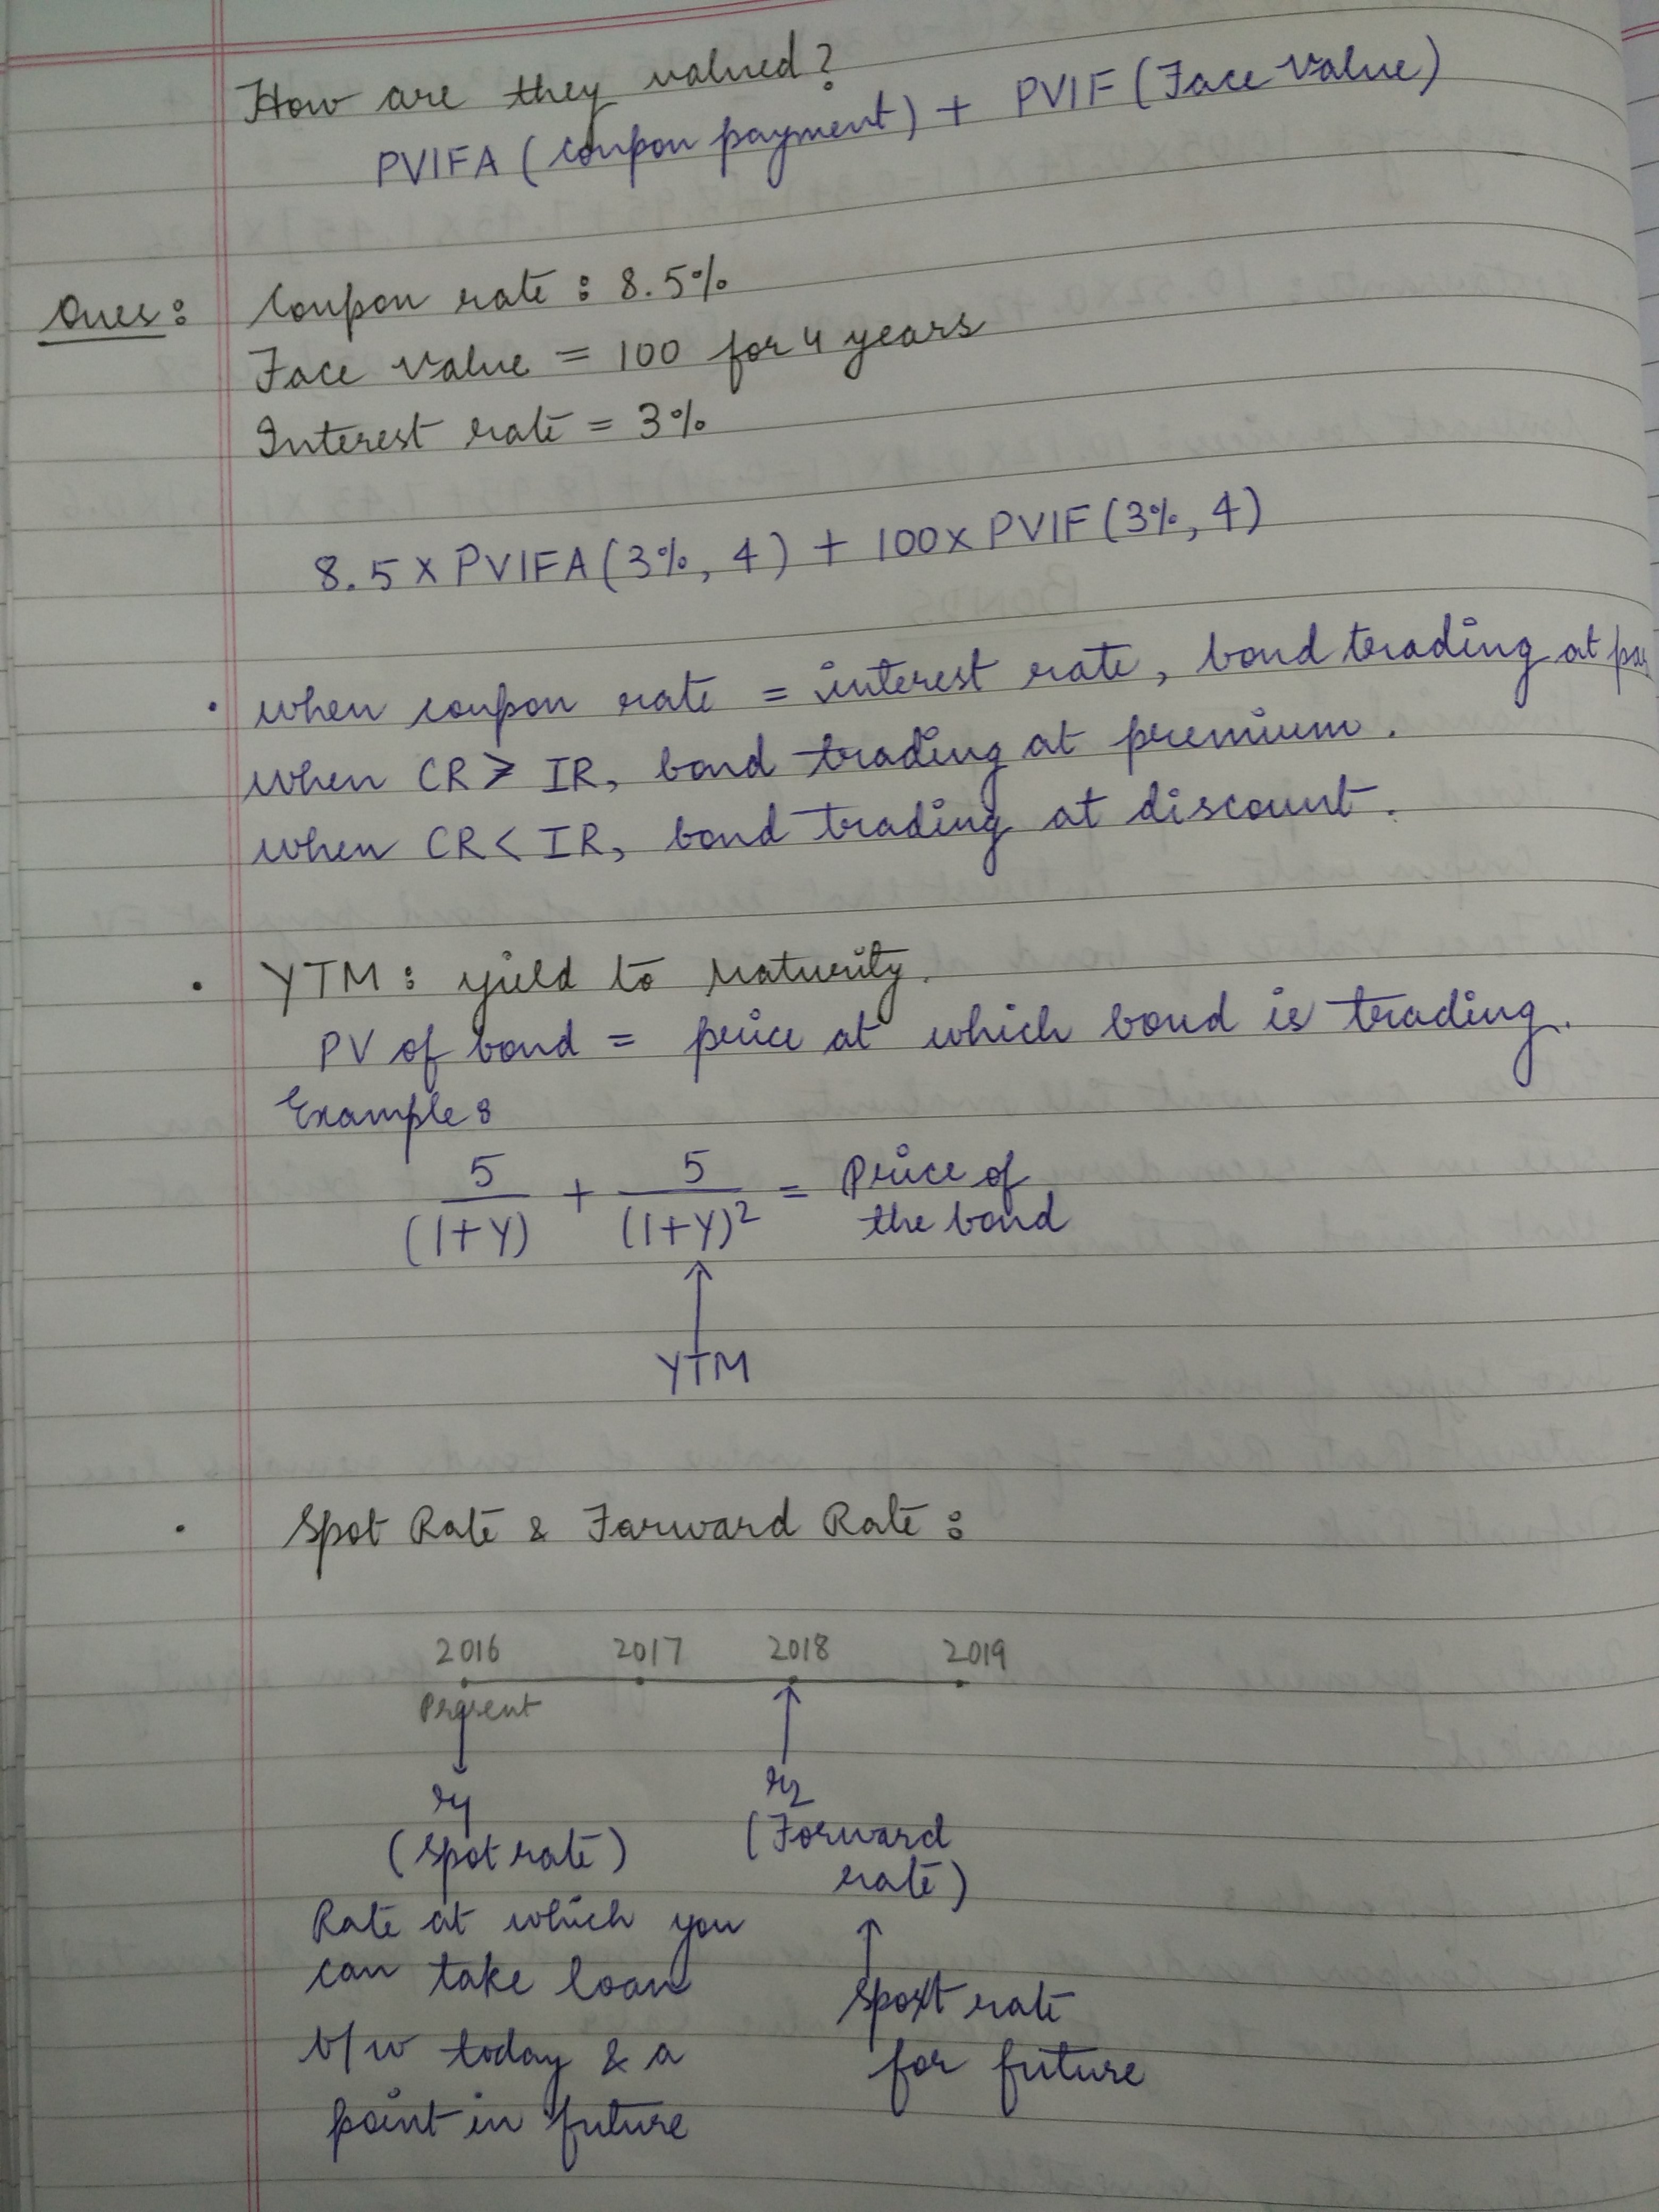 How are they valued?
PVIFA (coupon payment) + PVIF (Face Value)
Ques: Coupon rate : 8.5%
Face Value = 100 for 4 years
Interest rate = 3%
8.5 x PVIFA (3%, 4) + 100 x PVIF (3%, 4)
• when coupon rate = interest rate, bond trading at par
when CR > IR, bond trading at premium.
when CR < IR, bond trading at discount.
• YTM : yield to Maturity.
PV of bond = price at which bond is trading.
Example :
5/(1+Y) + 5/(1+Y)² = Price of the bond
↑
YTM
• Spot Rate & Forward Rate :
2016 2017 2018 2019
Present
r1 r2
(spot rate) (Forward rate)
Rate at which you
can take loan
b/w today & a
point in future
spot rate
for future